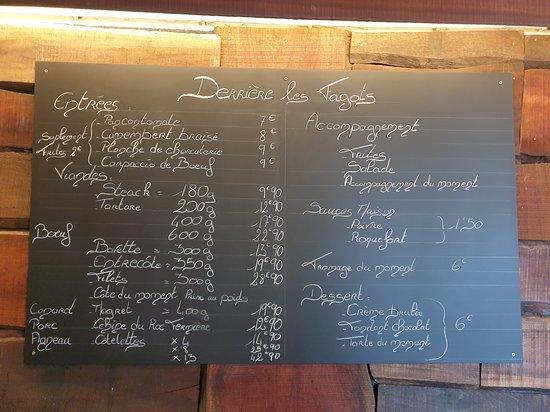 Derrière les Fagots
Entrées.
Suplement Frites 2€
Pancontomate 7€
Camembert braisé 8€
Planche de charcuterie 9€
Carpaccio de Boeuf 9€
Viandes.
Boeuf
Steack = 180g 9€90
Tartare 200g 12€90
400g 17€90
600g 22€90
Bavette = 300g 13€90
Entrecôte = 350g 19€90
Filets = 300g 28€90
Côte du moment Prix au poids
Canard Magret = 400g 19€90
Porc Echine du Roc Fermière 12€90
Agneau Côtelettes x4 14€90
x8 25€90
x13 42€90
Accompagnement
Frites
Salade
Accompagnement du moment
Sauces Maison
Poivre
Roquefort 1,50
Fromage du moment 6€
Dessert.
Crème brulée
Fondant chocolat 6€
Tarte du moment